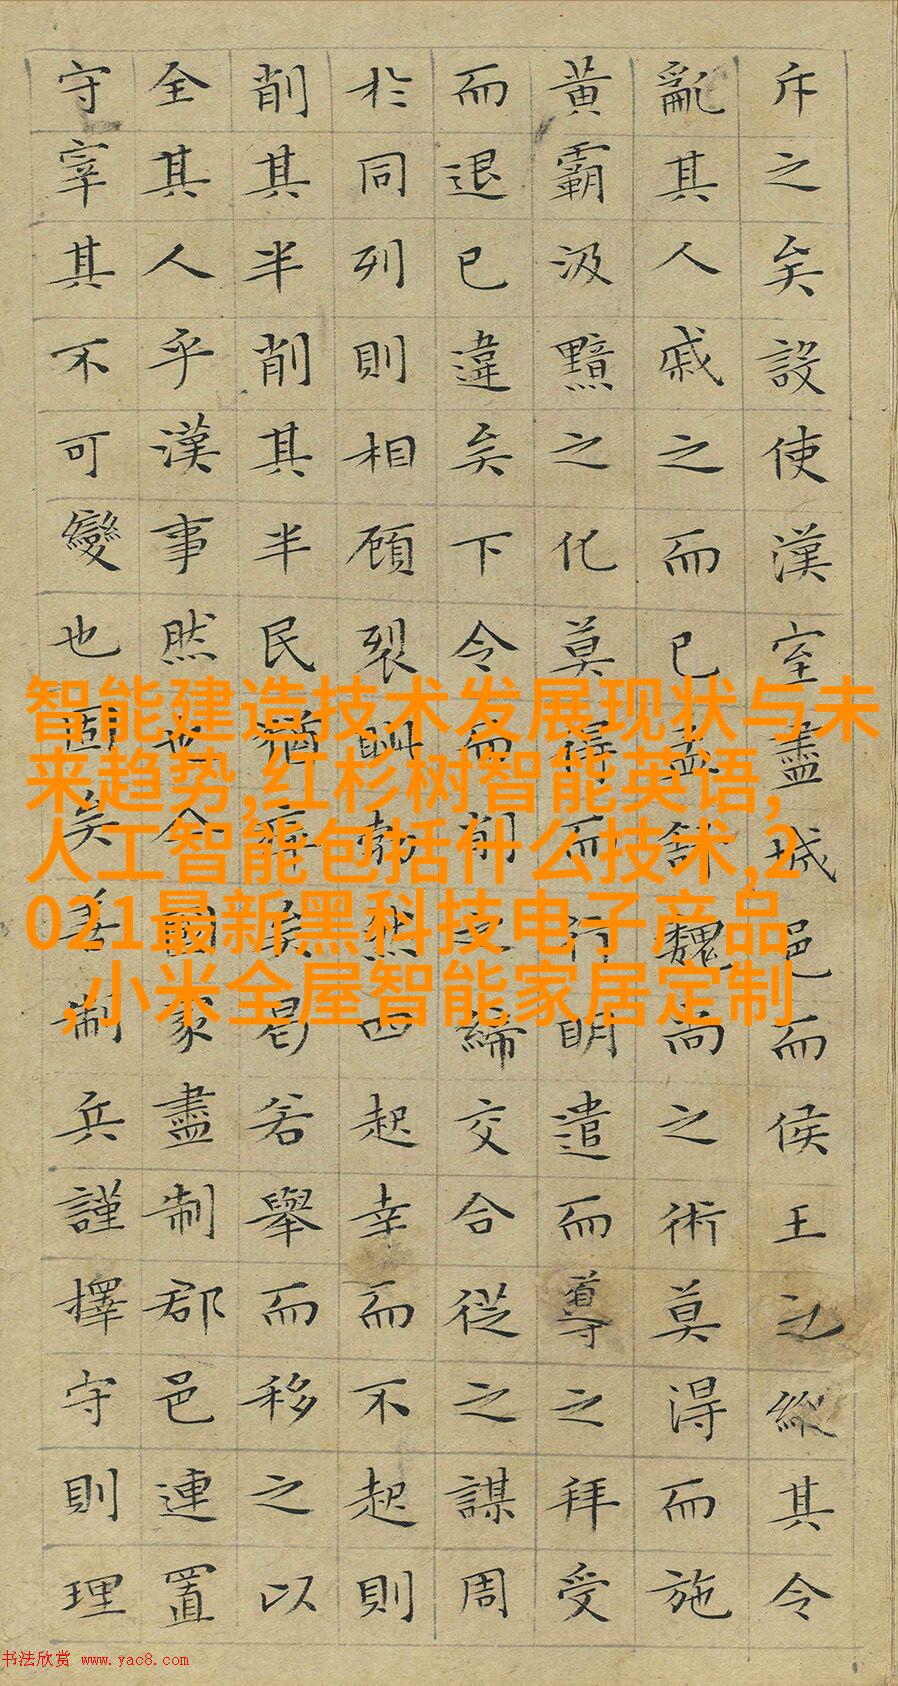 斥之矣設使漢室盡城邑而侯王之縱其令
亂其人戚之而已孟舒魏尚之術莫得而施
黃霸汲黯之化莫得而行明遣而導之拜受
而退已違矣下令而削之締交合從之謀周
於同列則相顧裂眦勃然而起幸而不起則
削其半削其半民猶瘁矣曷若舉而移之以
全其人乎漢事然也今國家盡制郡邑連置
守宰其不可變也固矣善制兵謹擇守則理
智能建造技术发展现状与未
来趋势,红杉树智能英语,
人工智能包括什么技术,2
021最新黑科技电子产品
,小米全屋智能家居定制
书法欣赏 www.yac8.com